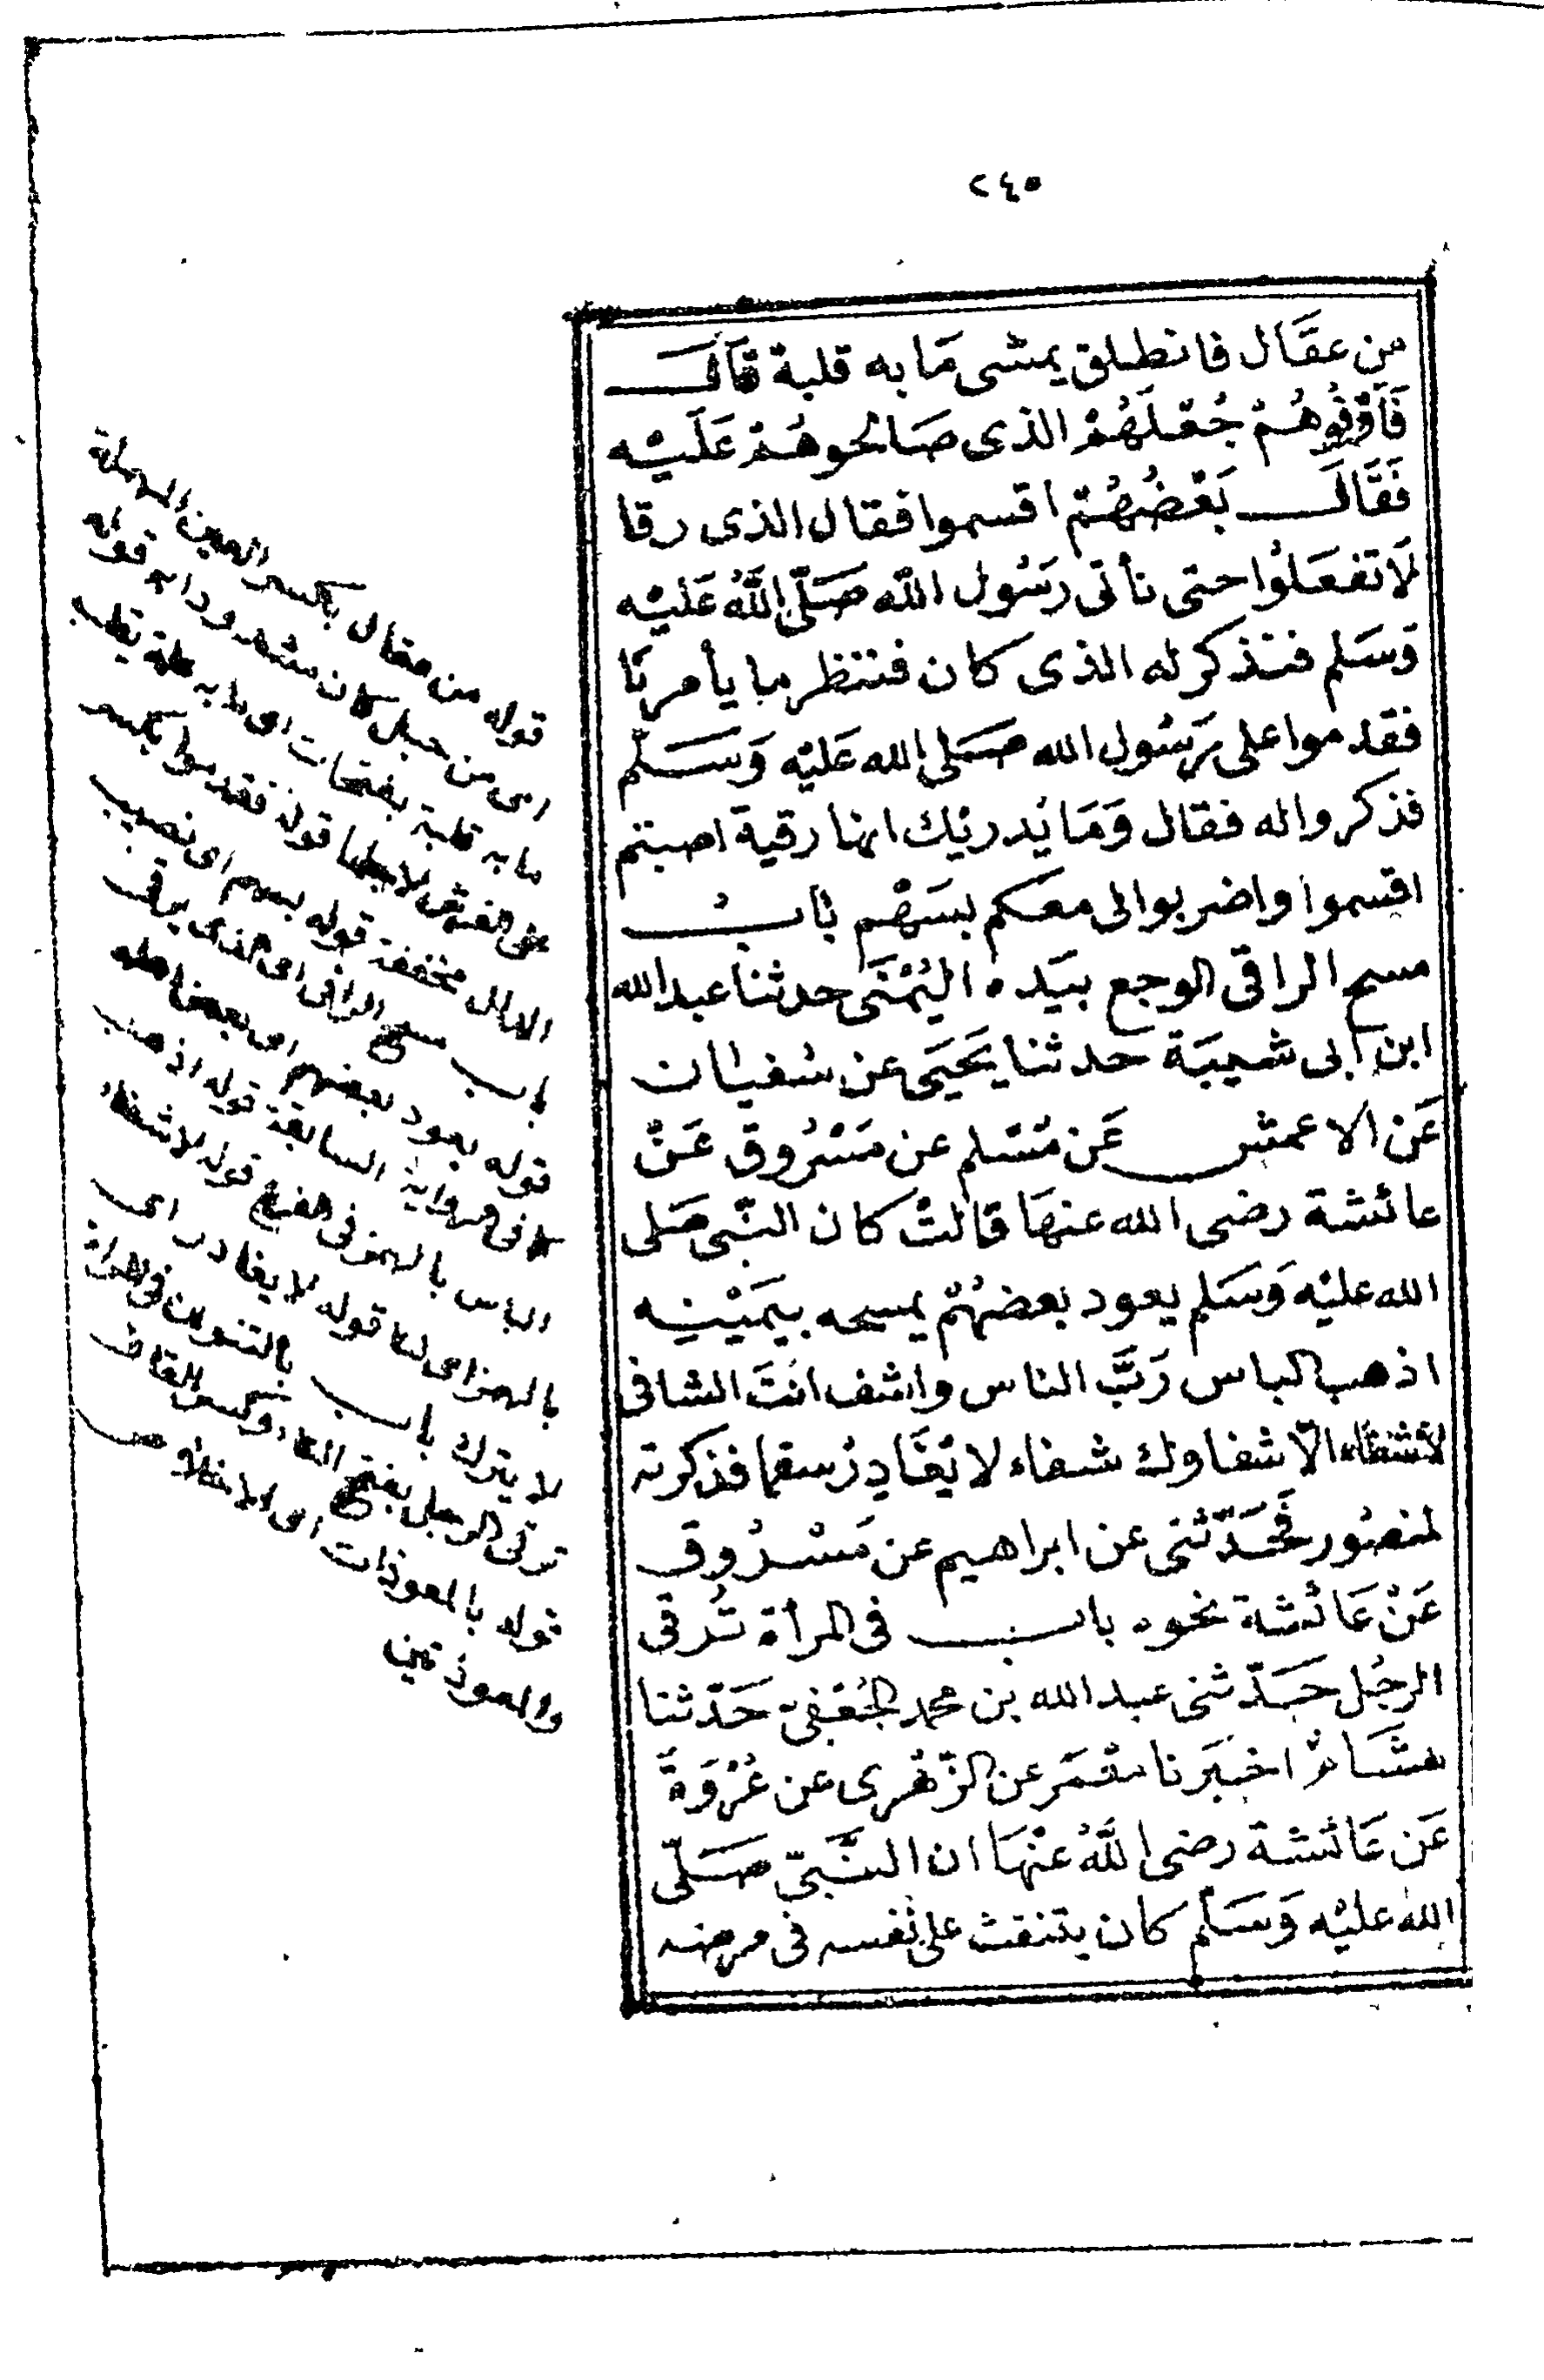 ٢٤٥
من عقَال فانطلق يمشى مَا به قلبة قَالَ
فَأوْفُوهُمْ جُعْلَهُمْ الذى صَالحوهُمْ عَلَيْه
فَقَالَ بَعْضُهُمْ اقسموا فقال الذى رقا
لَا تفعَلوُا حتى نأتى رَسُول اللّه صَلّى اللَّهُ عَليْه
وَسَلم فنذكر له الذى كان فننظر ما يأمرنَا
فقدموا على رَسُول الله صَلى الله عَليْه وَسَلّم
فذكروا له فقال وَمَا يُدريْك انها رقية اصبتم
اقسموا واضربوا لى معكم بسَهْم بَابُ
مسح الراقى الوجع بيَده اليُمْنَى حدثنا عبد الله
ابن ابى شيبَة حدثنا يَحيَى عن سُفيان
عَن الاعمش عَن مُسْلم عن مَسْرُوق عَنْ
عائشة رضى الله عنهَا قالتْ كان النّبى صَلى
الله عليْه وَسَلم يعود بعضهُمْ يمسحه بيَميْنِه
اذهب الباس رَبَّ الناس واشف انتَ الشافى
لَا شفَاء الّا شفاوك شفاء لا يُغَادِرُ سقما فذكرته
لمنصُور فَحَدّثنى عن ابراهيم عن مَسْرُوق
عَنْ عَائشة بنحوه باب فى المرأة تُرقى
الرجُل حَدّثنى عبد الله بن محمد الجُعْفىّ حَدّثنا
هشَامْ اخبَرنا معْمَر عن الزّهْرى عن عُرْوَةَ
عَن عَائشة رضى اللَّهُ عنْهَا ان النَّبىّ صَلّى
الله عليْه وَسَلّم كان ينفث على نفسه فى مرضه
قوله من عقال بكسر العين المهملة
اى من حبل كان مشدودا به قوله
ما به قلبة بفتحات اى ما به علة يقلب
على الفراش لاجلها قوله فقدموا بكسر
الدال مخففة قوله بسهم اى نصيب
باب مسح الراقى اى الذى يرقى
قوله يعود بعضهم اى بعض اهله
كما فى الرواية السابقة قوله اذهب
الباس بالهمز فى الفرع قوله لا شفاء
بالهمز اى لنا قوله لا يغادر اى
لا يترك باب بالتنوين فى المرأة
ترقى الرجل بفتح التاء وكسر القاف
قوله بالمعوذات اى الاخلاص
والمعوذتين